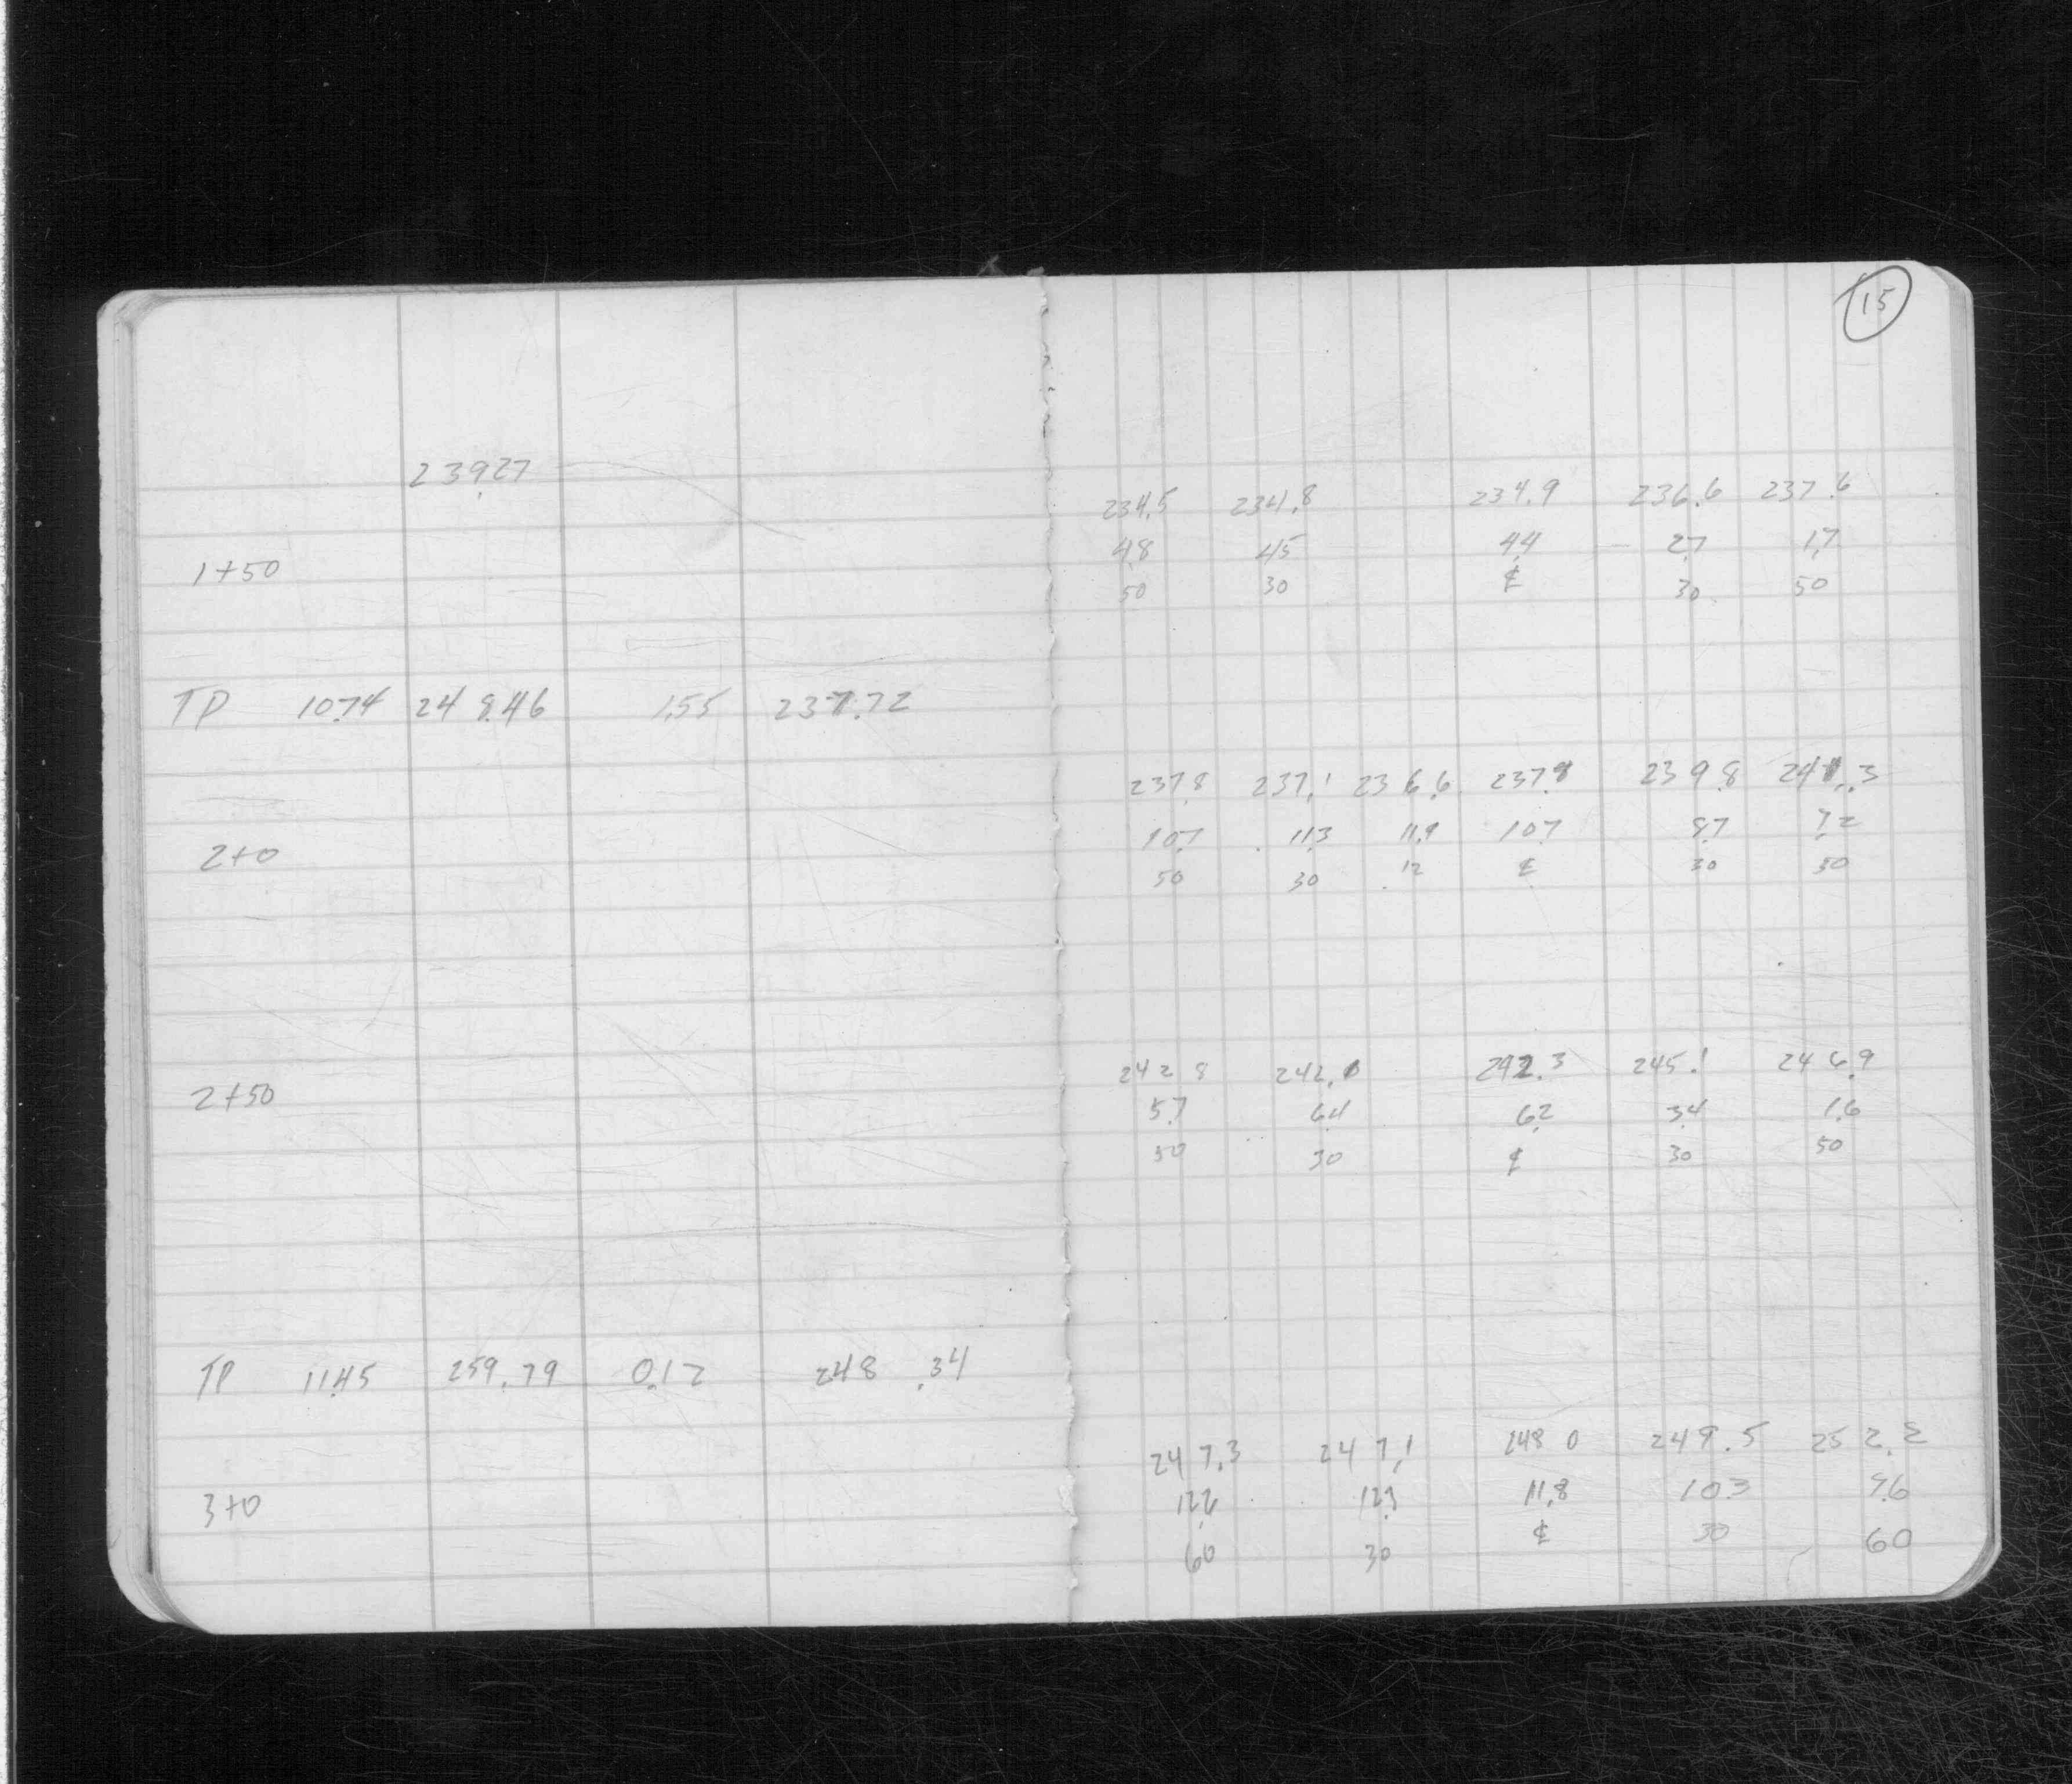 15
239.27
234.5 234.8 234.9 236.6 237.6
4.8 4.5 4.4 2.7 1.7
1+50
50 30 ℄ 30 50
TP 10.74 248.46 1.55 237.72
237.8 237.1 236.6 237.8 239.8 241.3
10.7 11.3 11.9 10.7 8.7 7.2
2+0
50 30 12 ℄ 30 50
242.8 242.0 242.3 245.1 246.9
2+50
5.7 6.4 6.2 3.4 1.6
50 30 ℄ 30 50
TP 11.45 259.79 0.12 248.34
247.3 247.1 248.0 249.5 252.2
3+0
12.6 12.3 11.8 10.3 7.6
60 30 ℄ 30 60